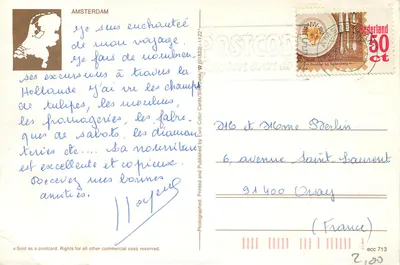 AMSTERDAM
je suis enchantée
de mon voyage
je fais de nombreu-
ses excursions à travers la
Hollande j'ai vu les champs
de tulipes, les moulins,
les fromageries, les fabri-
ques de sabots, les diaman-
teries etc... La nourriture
est excellente et copieuse.
Recevez mes bonnes
amitiés.
Sold as a postcard. Rights for all other commercial uses reserved.
Photographed, Printed and Published by
POSTCODE
Nederland
50
ct
Mr et Mme
6, avenue Saint Laurent
91400 Orsay
(France)
ecc 713
2,00